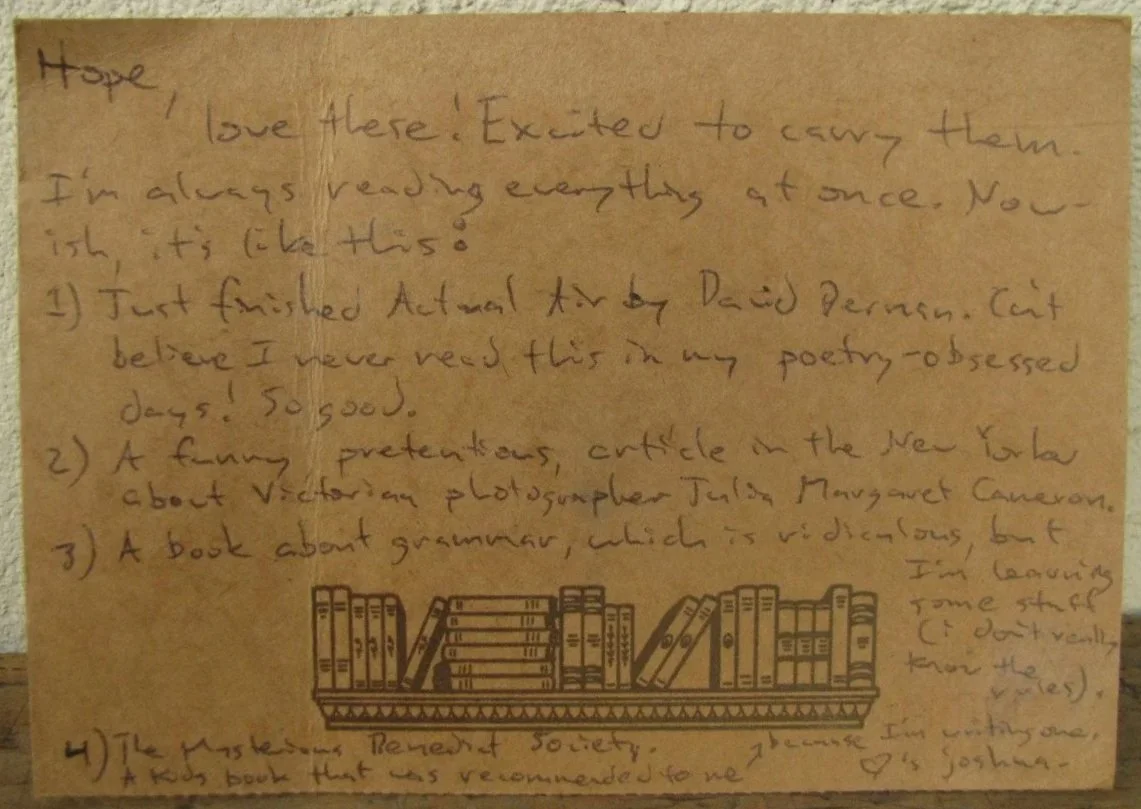 Hope,
love these! Excited to carry them.
I'm always reading everything at once. Now-
ish, it's like this:
1) Just finished Actual Air by David Berman. Can't
believe I never read this in my poetry-obsessed
days! So good.
2) A funny pretentious, article in the New Yorker
about Victorian photographer Julia Margaret Cameron.
3) A book about grammar, which is ridiculous, but
I'm learning
some stuff
(i don't really
know the
rules).
4) The Mysterious Benedict Society.
A kids book that was recommended to me
because I'm writing one.
♡'s joshua-